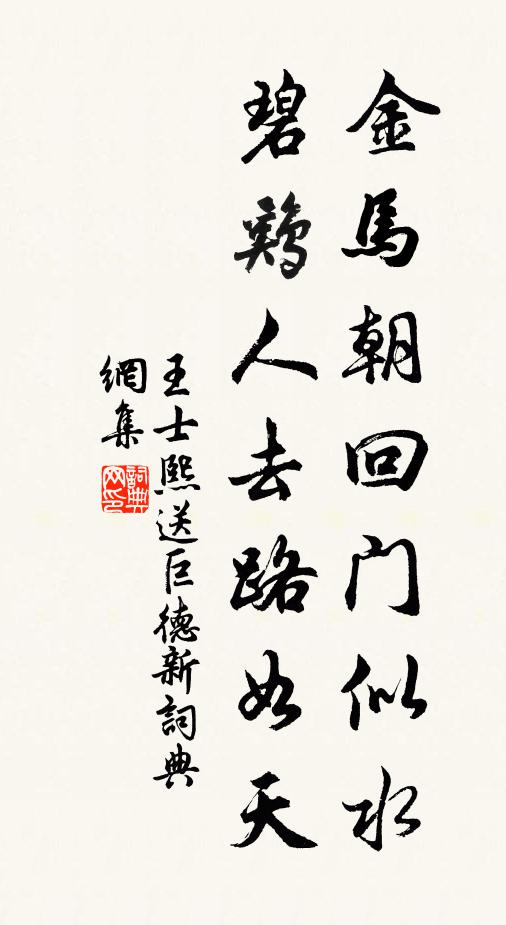 金馬朝回门似水
碧鷄人去路如天
王士熙送巨德新詞典
網集
詞典
网印